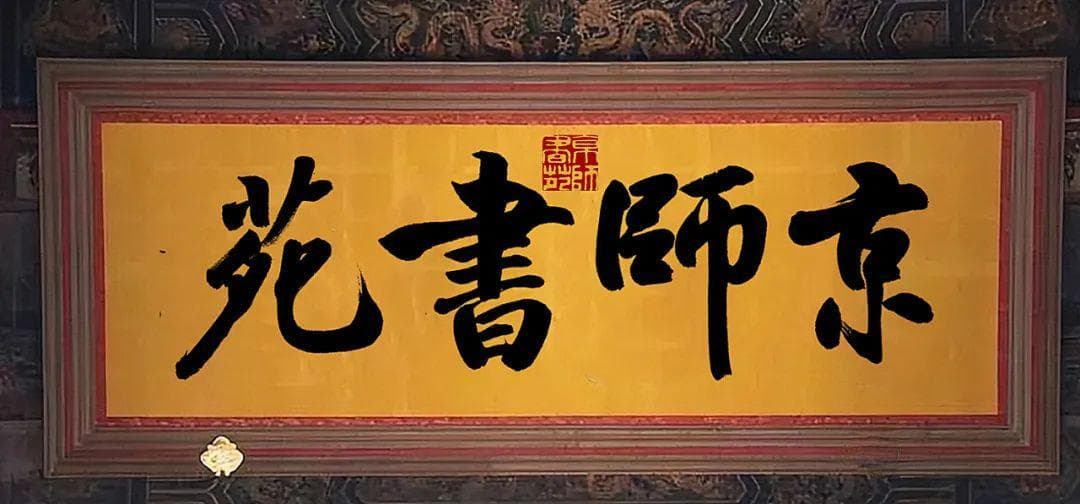 京師書苑
京師
書苑